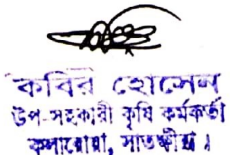 কবির হোসেন
উপ-সহকারী কৃষি কর্মকর্তা
কলারোয়া, সাতক্ষীরা।